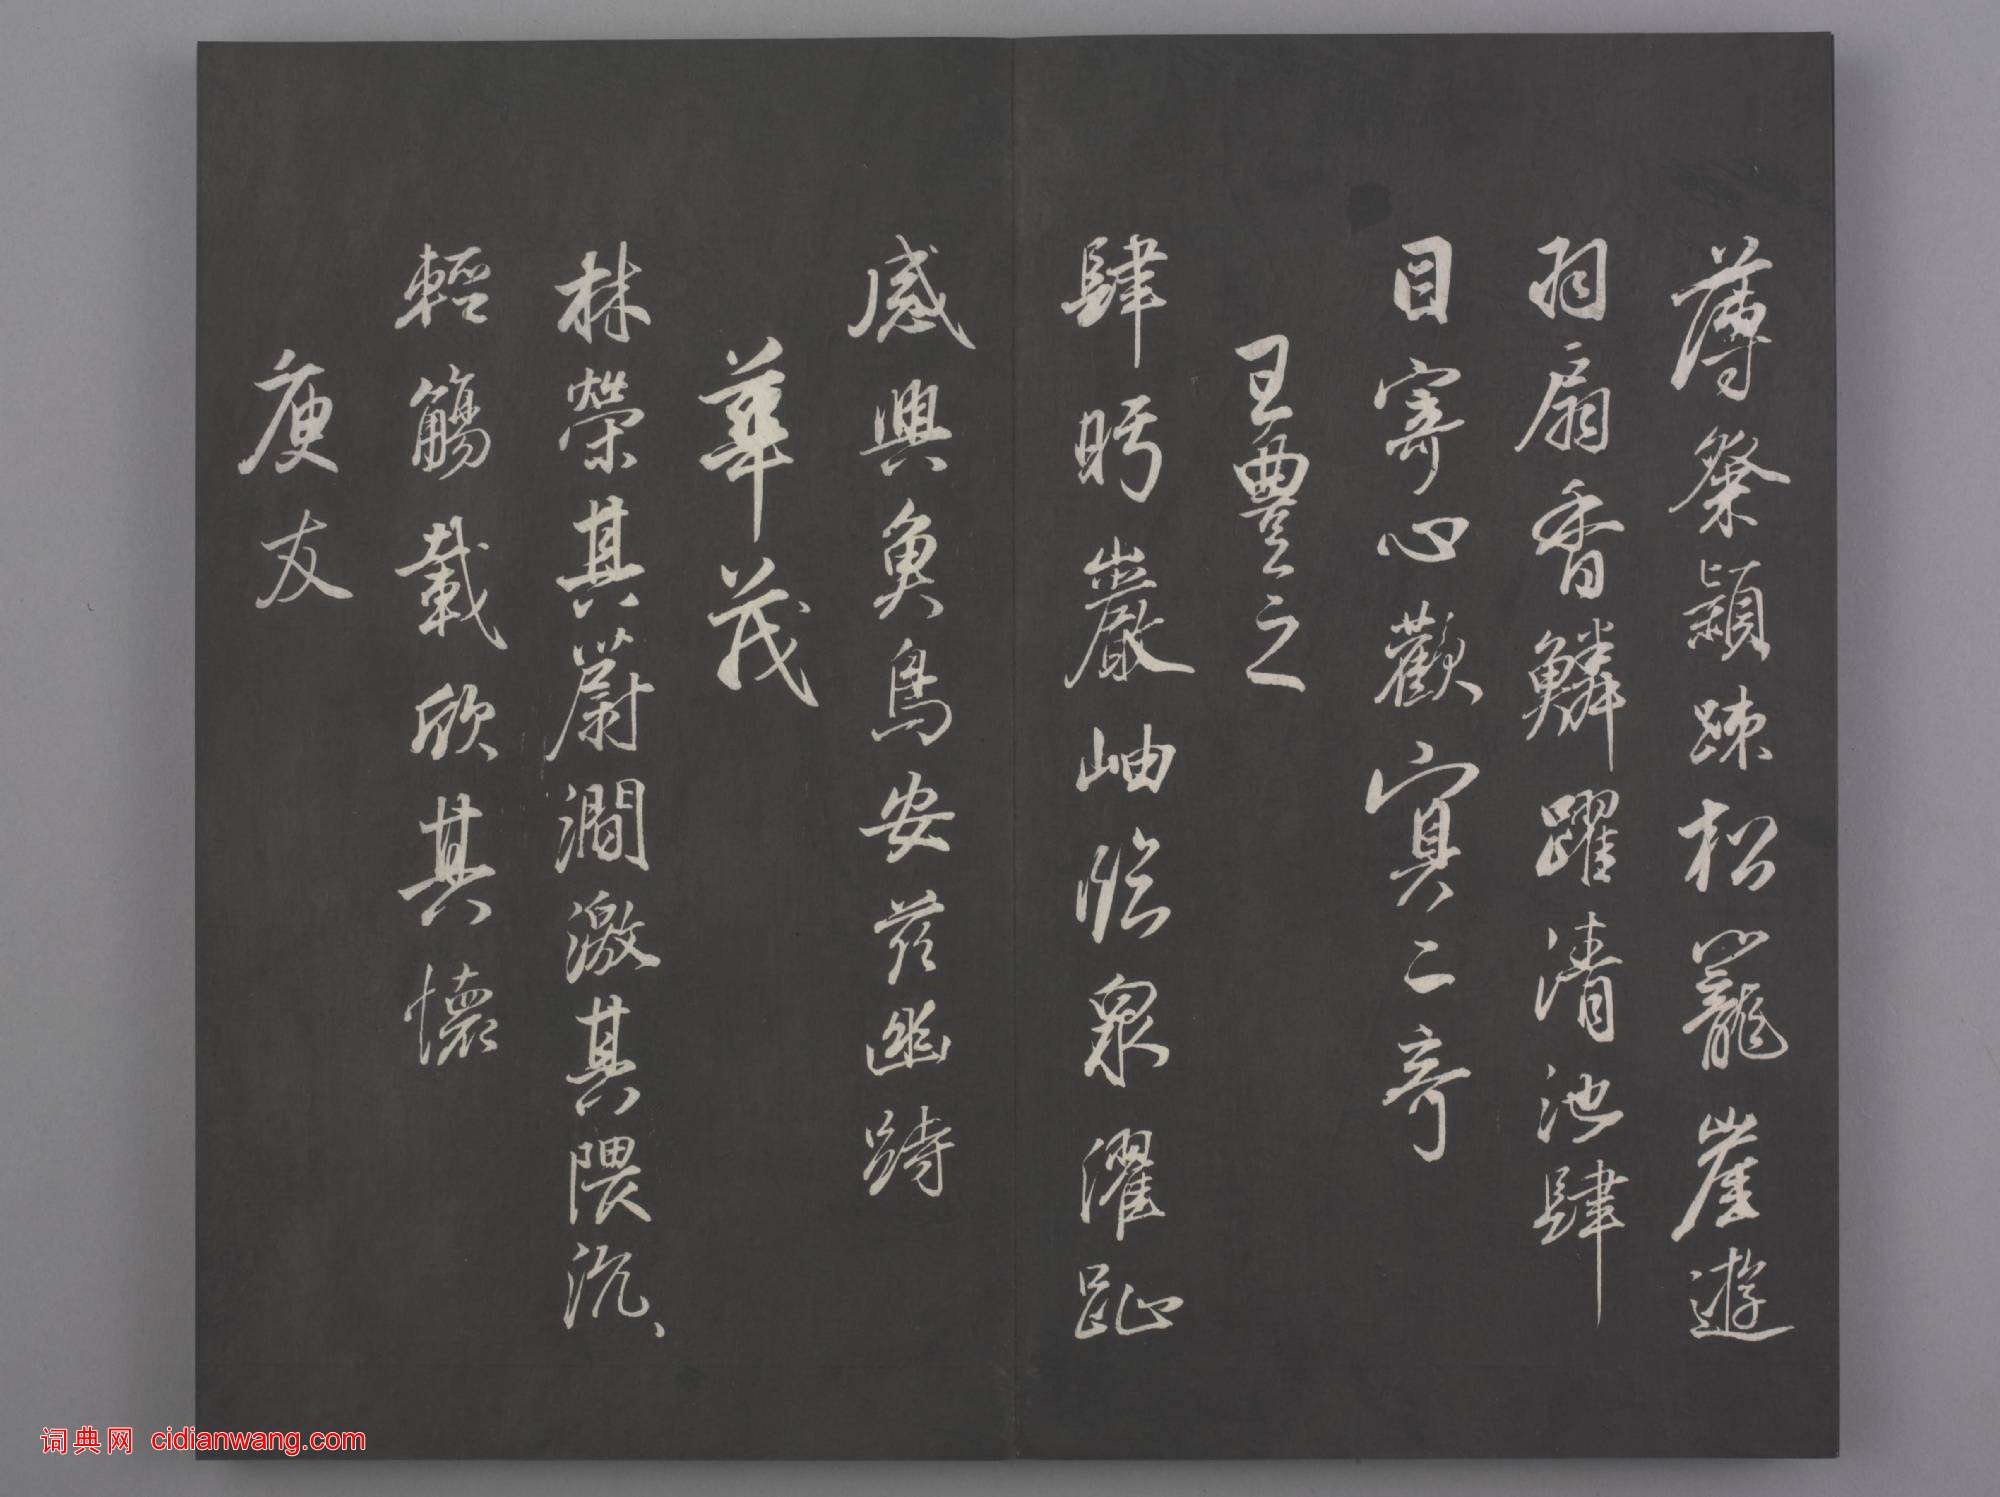 薄粲穎踈松籠崖遊
羽扇香鱗躍清池肆
目寄心歡寘二奇
王豐之
肆眄巖岫臨泉濯趾
感興魚鳥安茲幽跱
華茂
林榮其蔚澗激其隈汎汎
輕觴載欣其懷
庾友
词典网 cidianwang.com